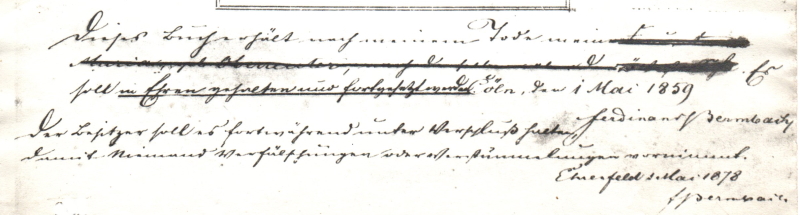 Dieses Buch erhält nach meinem Tode meine
Es
soll in Ehren gehalten und fortgesetzt werden. Cöln, den 1 Mai 1859
Ferdinand Bermbach
Der Besitzer soll es fortwährend unter Verschluß halten,
damit Niemand Verfälschungen oder Verstümmelungen vornimmt.
Ehrenfeld 1 Mai 1878
FBermbach